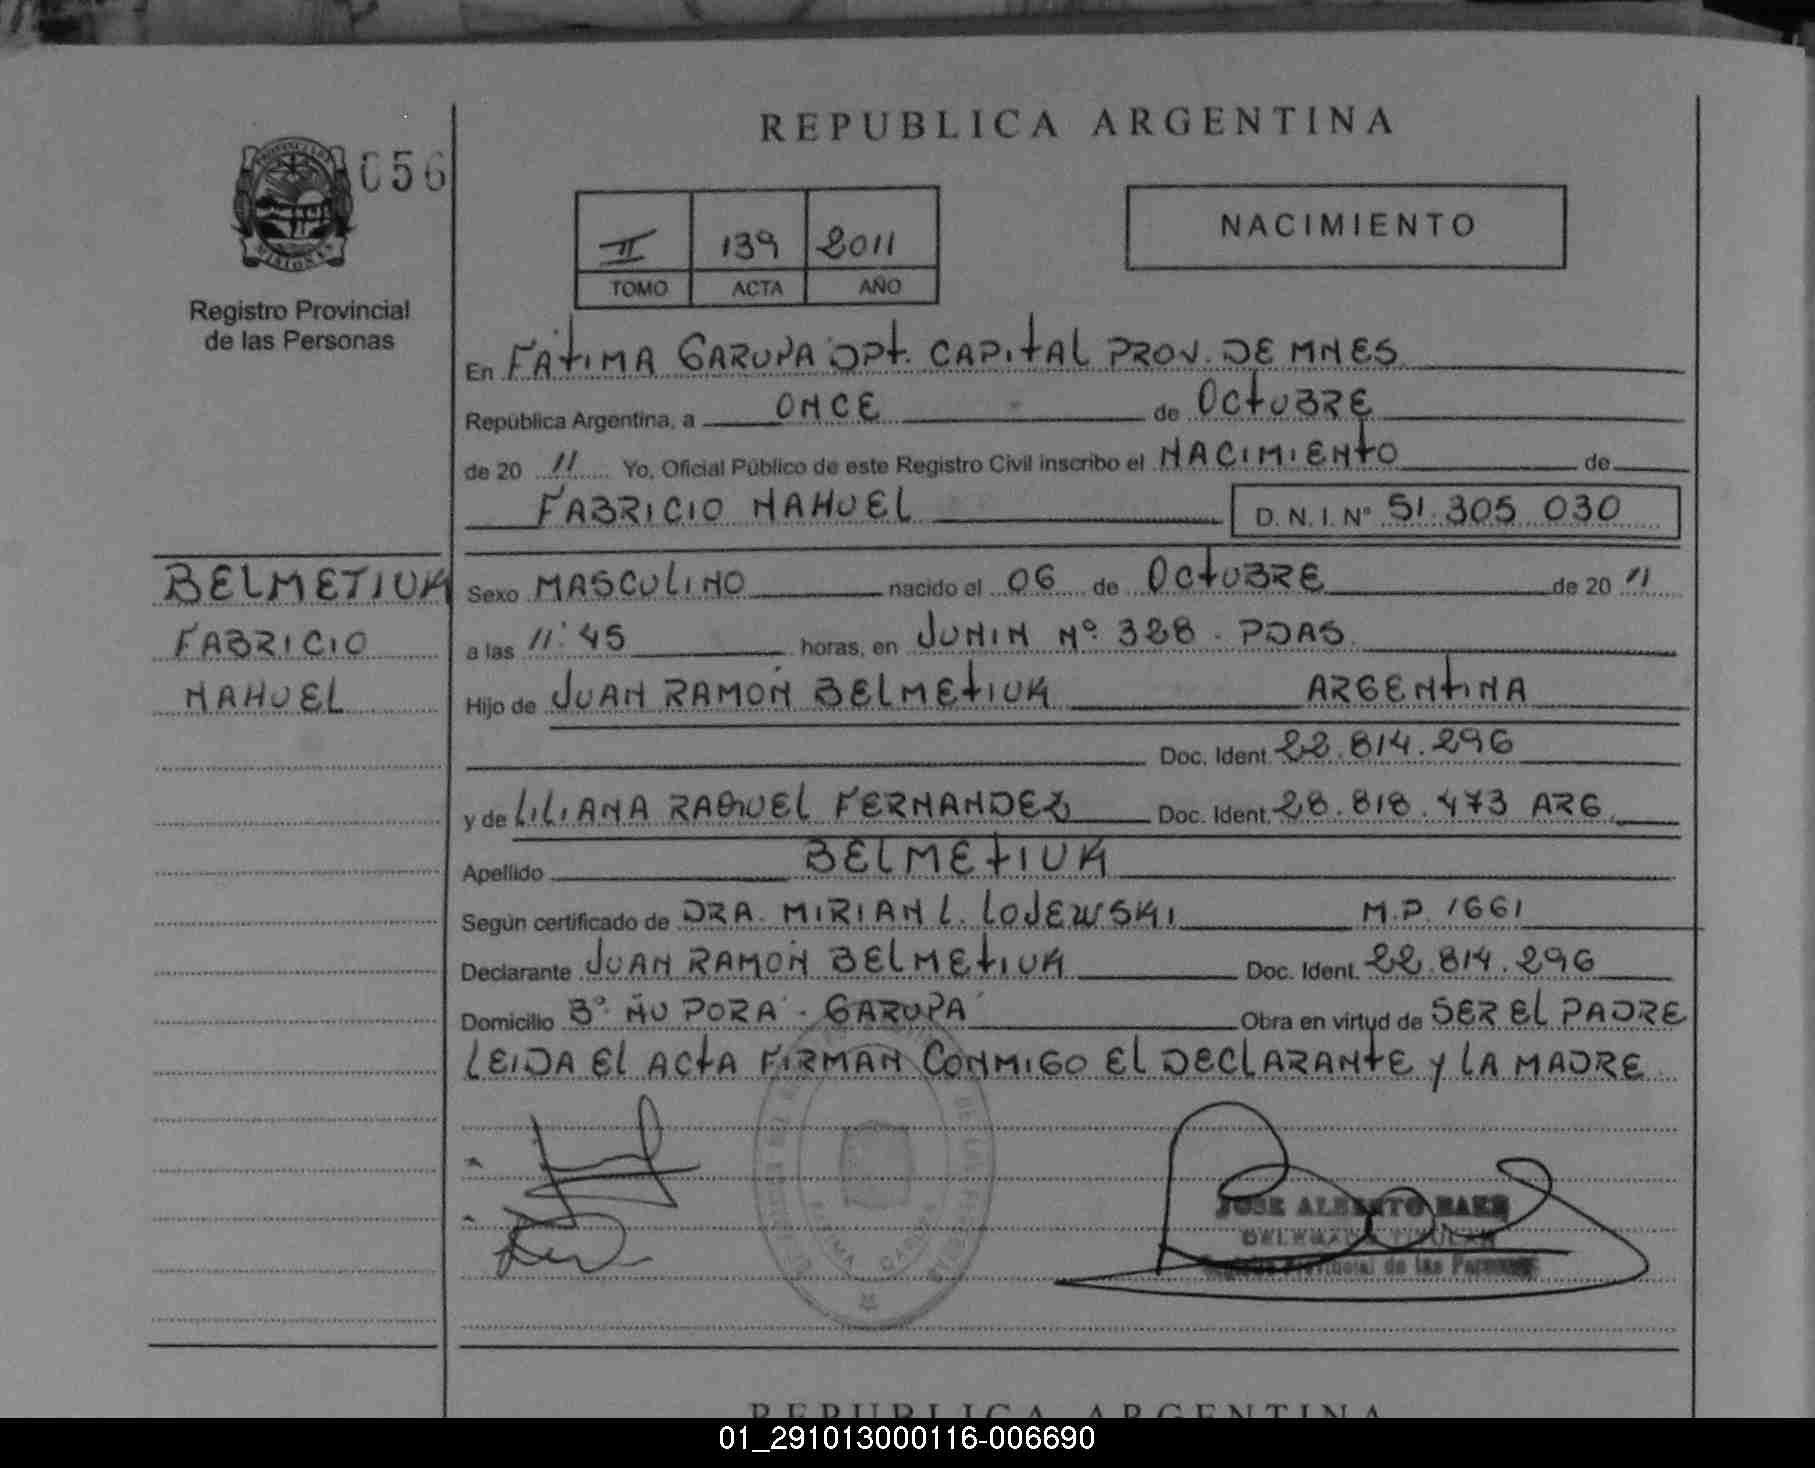 REPUBLICA ARGENTINA
056
PROVINCIA DE
MISIONES
Registro Provincial
de las Personas
II 139 2011
TOMO ACTA AÑO
NACIMIENTO
En FÁTIMA GARUPA DPT. CAPITAL PROV. DE MNES.
República Argentina, a ONCE de OCTUBRE
de 20 11 Yo, Oficial Público de este Registro Civil inscribo el NACIMIENTO de
FABRICIO NAHUEL D.N.I. Nº 51.305.030
BELMETIUK
FABRICIO
NAHUEL
Sexo MASCULINO nacido el 06 de OCTUBRE de 20 11
a las 11:45 horas, en JUNIN Nº 328 . PDAS.
Hijo de JUAN RAMÓN BELMETIUK ARGENTINA
Doc. Ident. 22.814.296
y de LILIANA RAQUEL FERNANDEZ Doc. Ident. 28.818.473 ARG.
Apellido BELMETIUK
Según certificado de DRA. MIRIAN L. LOJEWSKI M.P. 1661
Declarante JUAN RAMÓN BELMETIUK Doc. Ident. 22.814.296
Domicilio Bº ÑU PORÁ - GARUPÁ Obra en virtud de SER EL PADRE
LEIDA EL ACTA FIRMAN CONMIGO EL DECLARANTE Y LA MADRE
FATIMA GARUPA
JOSE ALBERTO BAEZ
DELEGADO TITULAR
Registro Provincial de las Personas
REPUBLICA ARGENTINA
01_291013000116-006690